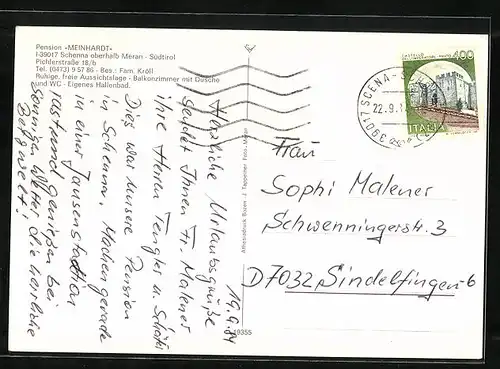 Pension »MEINHARDT«
I-39017 Schenna oberhalb Meran - Südtirol
Pichlerstraße 18/b
Tel. (0473) 9 57 86 - Bes.: Fam. Kröll
Ruhige, freie Aussichtslage - Balkonzimmer mit Dusche
und WC - Eigenes Hallenbad.
19.9.84
Herzliche Urlaubsgrüße
sendet Ihnen Fr. Malener
ihre Herren u.
Dies war unsere Pension
in Schenna. Machen gerade
in einer Jausenstation
Rast und genießen bei
sonnigen Wetter die herrliche
Bergwelt!
Athesiadruck Bozen J. Tappeiner Foto-Meran
400
ITALIA
39017 SCENA
22.9.
Frau
Sophi Malener
Schwenningerstr. 3
D7032 Sindelfingen-6